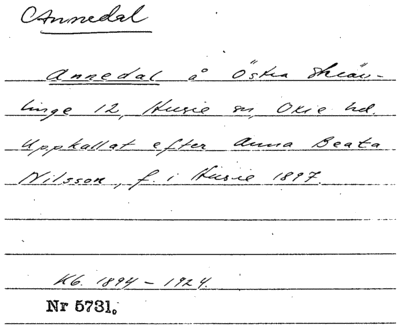 Annedal
Annedal å Östra Skräv-
linge 12, Husie sn, Oxie hd.
Uppkallat efter Anna Beata
Nilsson, f. i Husie 1897.
Kb. 1894-1924.
Nr 5731.